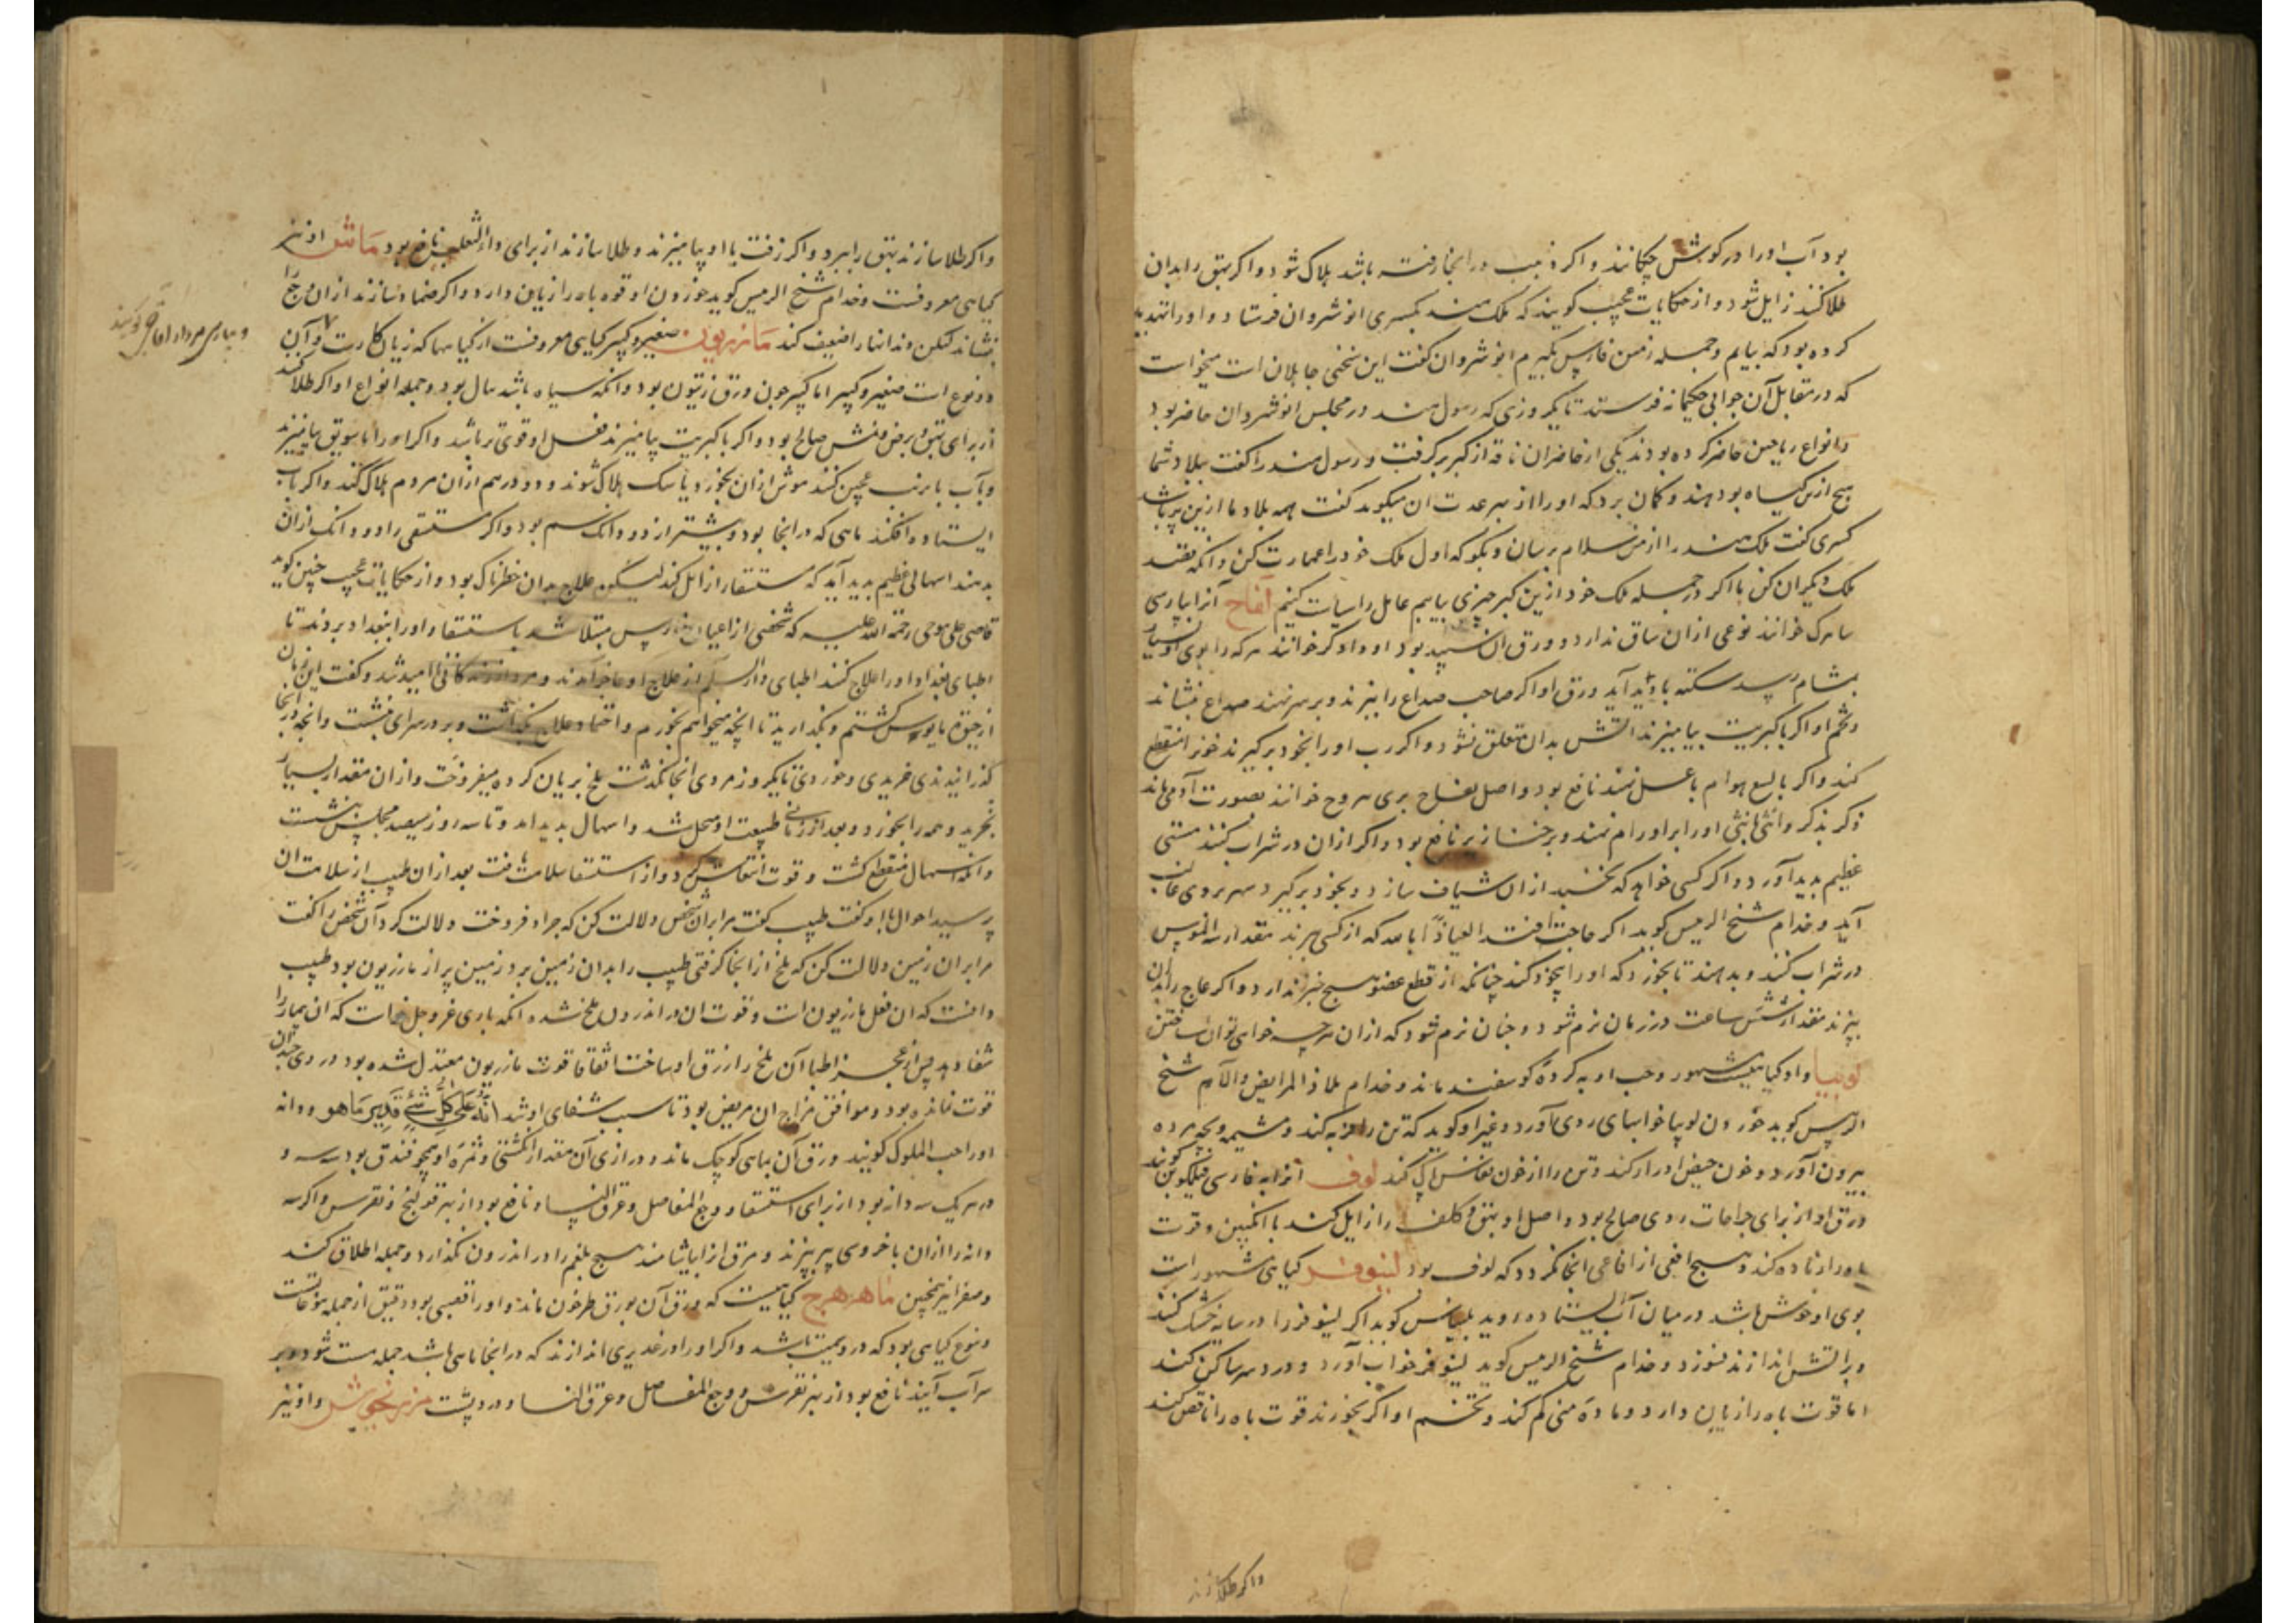 بود آب او را در گوش چکانند و اگر در انجا رفته باشد هلاک شود و اگر بهق را بدان
طلا کنند زایل شود و از حکایات عجیب گویند که ملک هند بکسری انوشروان فرستاد و او را تهدید
کرده بود که بیایم و جمله زمین فارس بگیرم انوشروان گفت این سخنی جاهلان است میخواست
که در مقابل آن جوابی حکیمانه فرستد تا یکروزی که رسول هند در مجلس انوشروان حاضر بود
و انواع ریاحین حاضر کرده بودند یکی از حاضران ناقه از کبر برگرفت و رسول هند را گفت ببلاد شما
هیچ ازین گیاه بود هند و گمان برد که او را از بهر عدت ان میگوید گفت همه بلاد ما ازین پر باشد
کسری گفت ملک هند را از من سلام برسان و بگو که اول ملک خود را عمارت کن و انگه قصد
ملک دیگران کن ما اگر در جمله ملک خود ازین کبر چیزی بیابیم عامل را سیاست کنیم آنرا بپارسی
خوانند نوعی از ان ساق ندارد و ورق ان سپید بود خوانند هرکه را بوی او بسیار
بمشام رسد سکته پدید آید ورق او اگر صاحب صداع را بپزند و بر سر نهند صداع بنشاند
و تخم او اگر با کبریت بیامیزند اتش بدان متعلق نشود و اگر رب او را بخود برگیرند خون را منقطع
کند و اگر بالسع هوام با عسل نهند نافع بود و اصل لفاح بری سروج خوانند بصورت آدمی ماند
ذکر بذکر و انثی بانثی او را بر اورام نهند و بر خنازیر نافع بود و اگر از ان در شراب کنند مستی
عظیم پدید آورد و اگر کسی خواهد که بخسبد از ان شیاف سازد و بخود برگیرد سهر بر وی غالب
آید و خدام شیخ الرییس گوید اگر حاجت افتد العیاذ بالله که از کسی ببرند مقدار سه
در شراب کنند و بدهند تا بخورد که او را بیخود کند چنانکه از قطع عضو هیچ خبر ندارد و اگر عاج را بدان
بپزند مقدار شش ساعت در زمان نرم شود و چنان نرم شود که از ان هرچه خواهی توان ساختن
لوبیا و او گیاهیست مشهور و حب او به کرده گوسفند ماند و خدام ملاذ شیخ
الرییس گوید خوردن لوبیا خوابهای ردی آورد و غیر او گوید که تن را فربه کند و مشیمه و بچه مرده
بیرون آورد و خون حیض ادرار کند و تن را از خون نفاس پاک کند لوف آنرا به فارسی فیلگوش گویند
ورق او از برای جراحات ردی صالح بود و اصل او بهق و کلف را زایل کند با انگبین و قوت
باه را زیاده کند و هیچ افعی از افاعی انجا نگردد که لوف بود لینوفر گیاهی مشهور است
بوی او خوش باشد در میان آب ایستاده روید بلیناس گوید اگر لینوفر را در سایه خشک کنند
و بر آتش اندازند نسوزد و خدام شیخ الرییس گوید لینوفر خواب آورد و درد سر ساکن کند
اما قوت باه را زیان دارد و ماده منی کم کند و تخم او اگر بخورند قوت باه را ناقص کند
و اگر طلا سازند
و اگر طلا سازند بهق را ببرد و اگر زفت با او بیامیزند و طلا سازند از برای داء الثعلب نافع بود ماش او نیز
گیاهی معروفست و خدام شیخ الرییس گوید خوردن او قوه باه را زیان دارد و اگر ضماد سازند از ان وجع را
بنشاند لیکن دندانها را ضعیف کند مازریون صغیر و کبیر گیاهی معروفست از گیاهها که زیان کارست و آن
دو نوع است صغیر و کبیر اما کبیر چون ورق زیتون بود و انکه سیاه باشد بود و جمله انواع او اگر طلا کنند
از برای بهق و برص و نمش صالح بود و اگر با کبریت بیامیزند فعل او قوی تر باشد و اگر او را با سویق بیامیزند
و بآب یا بزیت عجین کنند موش از ان بخورد یا سگ هلاک شوند و دو درهم از ان مردم هلاک کند و اگر بآب
ایستاده افکنند ماهی که در انجا بود و بیشتر از دو دانک سم بود و اگر مستسقی را دو دانک از ان
بدهند اسهالی عظیم پدید آید که استسقا را زایل کند لیکن علاج بدان خطرناک بود و از حکایات عجیب چنین گوید
قاضی علی رحمة الله علیه که شخصی را از اعیان فارس مبتلا شد باستسقا و او را ببغداد بردند تا
اطبای بغداد او را علاج کنند اطبای دار السلم از علاج او عاجز آمدند و مرد از زندگانی نا امید شد و گفت این زمان
از حیوة مایوس گشتم و بگذارید تا انچه میخواهم بخورم و احتماد علاج بگذاشت و بر در سرای نشست و انچه در انجا
گذرانیدندی خریدی و خوردی تا یکروز مردی انجا گذشت ملخ بریان کرده میفروخت و از ان مقدار بسیار
بخرید و همه را بخورد و بعد از زمانی طبیعت او منحل شد و اسهال پدید امد و تا سه روز سیصد مجلس بنشست
و انگه اسهال منقطع گشت و قوت انتعاش کرد و از استسقا سلامت یافت بعد از ان طبیب از سلامت ان
پرسید احوال با او گفت طبیب گفت مرا بران شخص دلالت کن که جراد فروخت دلالت کرد آن شخص را گفت
مرا بران زمین دلالت کن که ملخ از انجا گرفتی طبیب را بدان زمین برد زمین پر از مازریون بود طبیب
دانست که ان فعل مازریون است و قوت ان در اندرون ملخ شده انگه باری عز و جل خواست که ان بیمار را
شفا دهد پس از عجز اطبا آن ملخ را رزق او ساخت اتفاقا قوت مازریون معتدل شده بود در وی چندان
قوت نمانده بود و موافق مزاج ان مریض بود تا سبب شفای او شد انه علی کل شئ قدیر ماهو دانه
او را حب الملوک گویند ورق آن بماهی کوچک ماند و درازی آن مقدار انگشتی و ثمره او همچو فندق بود سه سه و
در هر یک سه دانه بود از برای استسقا و وجع المفاصل و عرق النسا و نافع بود از بهر قولنج و نقرس و اگر سه
دانه را از ان با خروسی پیر بپزند و مرق انرا بیاشامند هیچ بلغم را در اندرون نگذارد و جمله اطلاق کند
و صفرا نیز همچنین ماهرهرج گیاهیست که ورق آن بورق طرخون ماند و او را قضیبی بود دقیق از جمله یتوعاتست
و نوع گیاهی بود که در و سمیت باشد و اگر او را در غدیری اندازند که در انجا ماهی باشد جمله مست شود و بر
سر آب آیند نافع بود از بهر نقرس و وجع المفاصل و عرق النسا و درد پشت مرزنجوش و او نیز